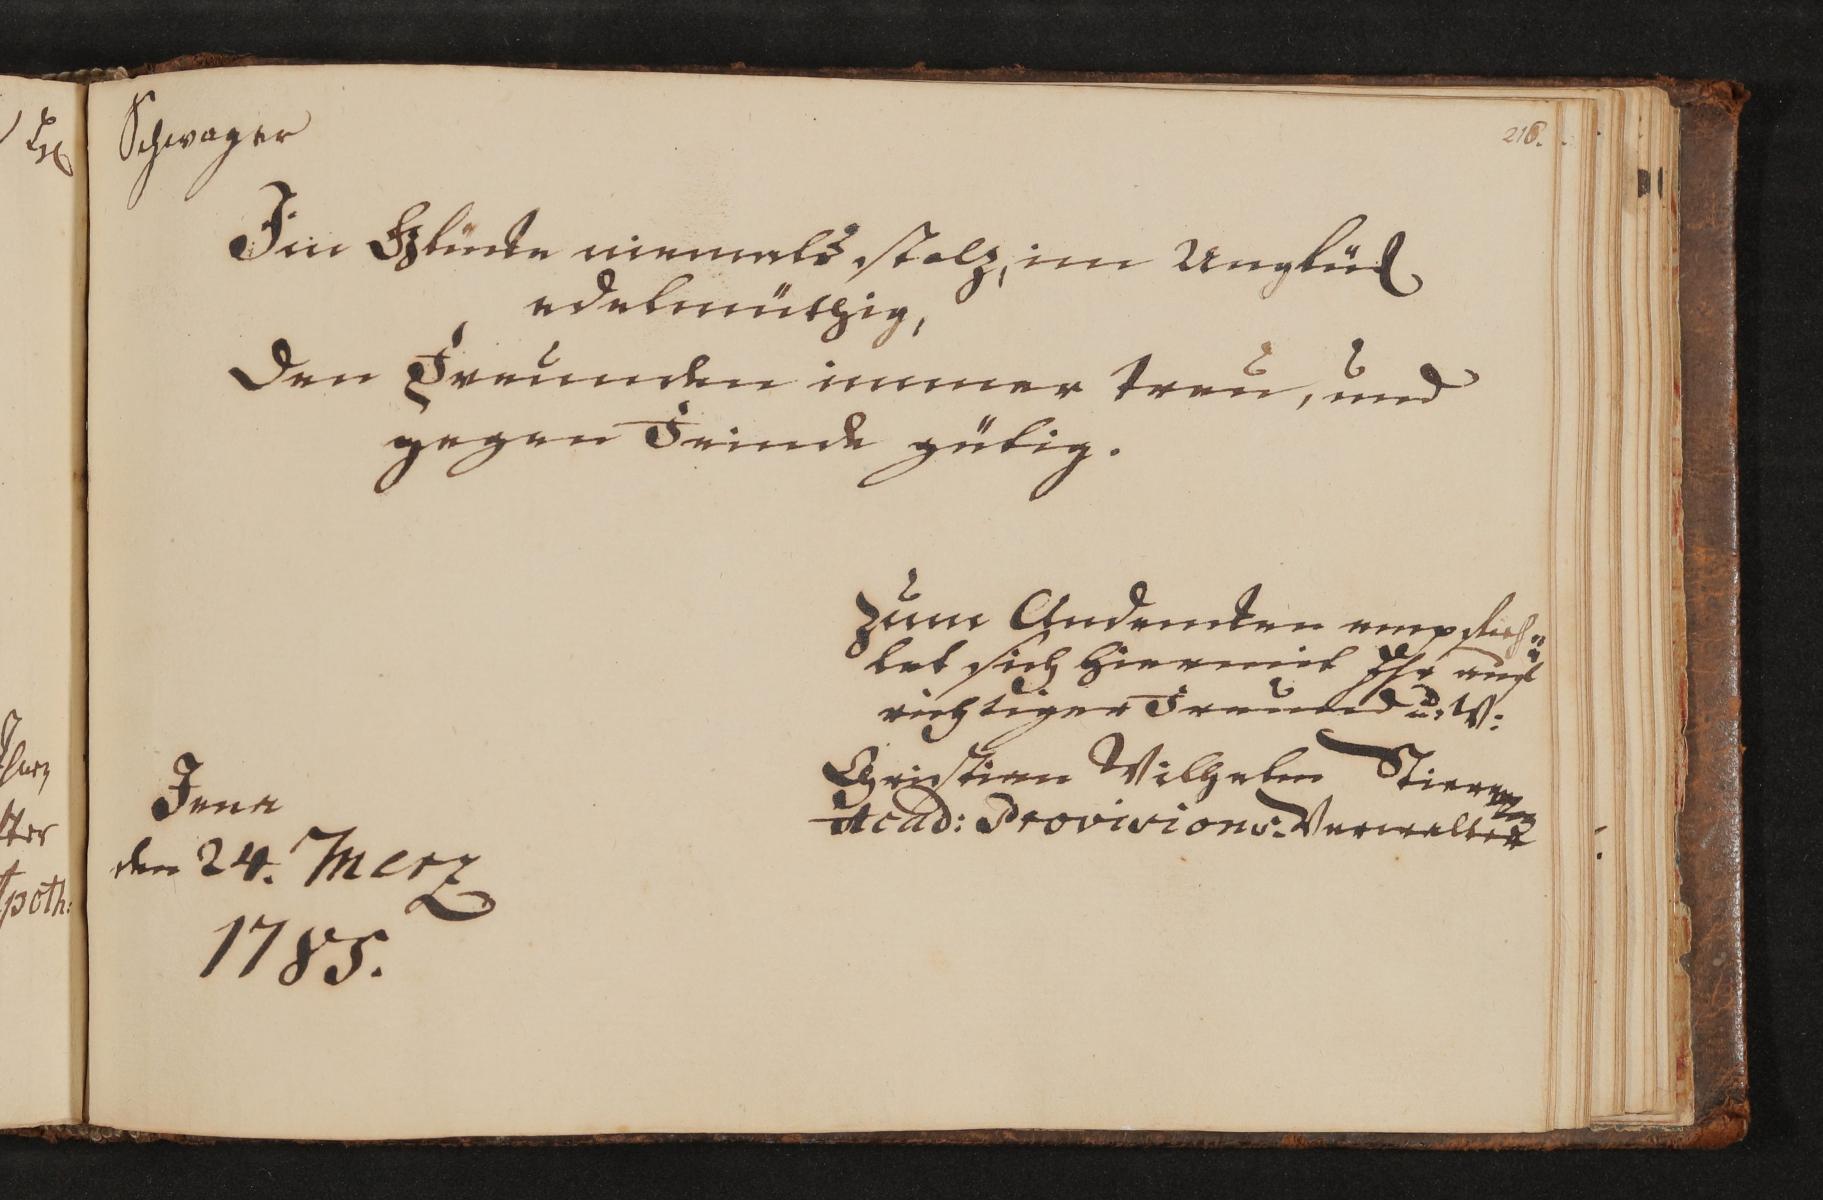 Schwager
216.
Im Glücke niemals stolz, im Unglück
edelmüthig,
Den Freunden immer treu, und
gegen Feinde gütig.
Zum Andencken empfieh=
let sich hiermit Ihr auf
richtiger Freund u. W:
Christian Wilhelm
Acad: Provisions-Verwalter
Jena
den 24. Merz
1785.